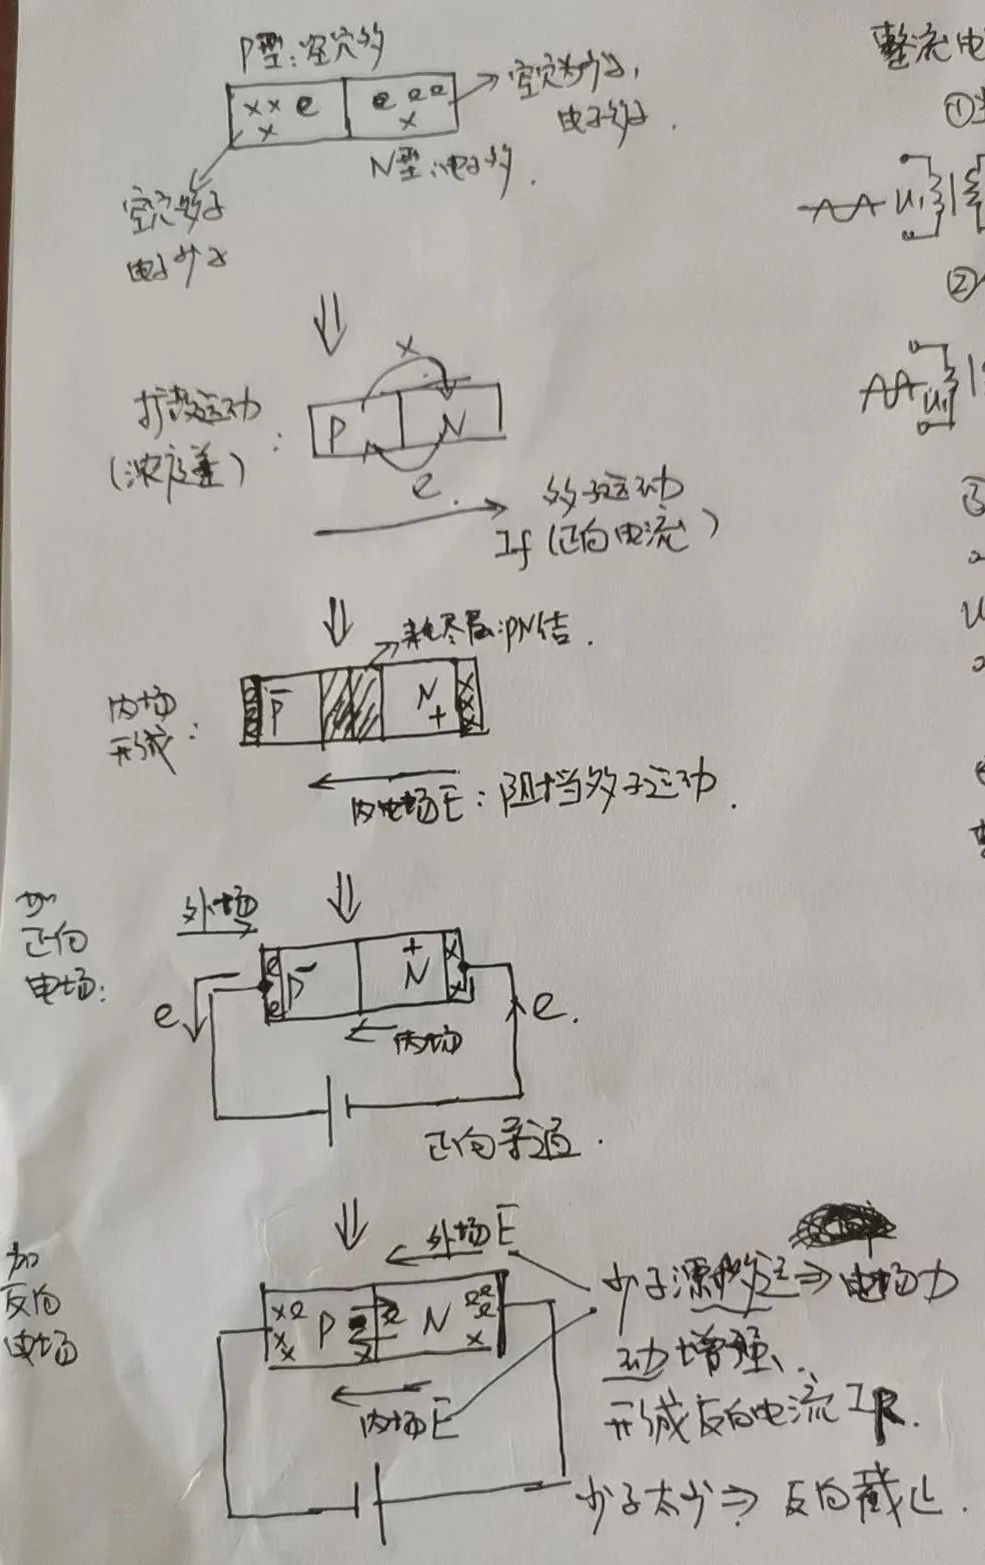 P型：空穴多
xx e
x
e ee
x
空穴为少子，
电子多子.
N型：电子多.
空穴多子
电子少子
整流电
①
U₁
②
U₁
③
x
扩散运动
(浓度差)：
P
N
e.
多子运动
If (正向电流)
耗尽层：PN结.
内场
形成：
P
-
N
+
xxx
内电场E：阻挡多子运动.
加
正向
电场：
外场
e
e
P
-
+
N
x
x
e
e.
内场
正向导通.
加
反向
电场
外场E
xe
xx
P
N
ee
e
x
内场E
少子漂移运⇒电场力
动增强、
形成反向电流IR.
少子太少⇒反向截止.